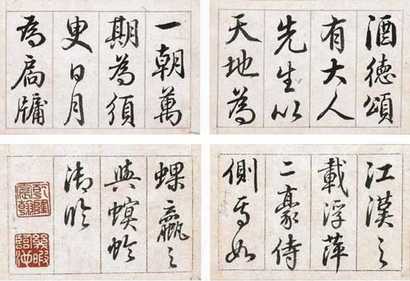 酒德頌
有大人
先生以
天地為
一朝萬
期為須
臾日月
為扃牖
江漢之
載浮萍
二豪侍
側焉如
蜾蠃之
與螟蛉
御臨
乾隆宸翰
幾暇臨池